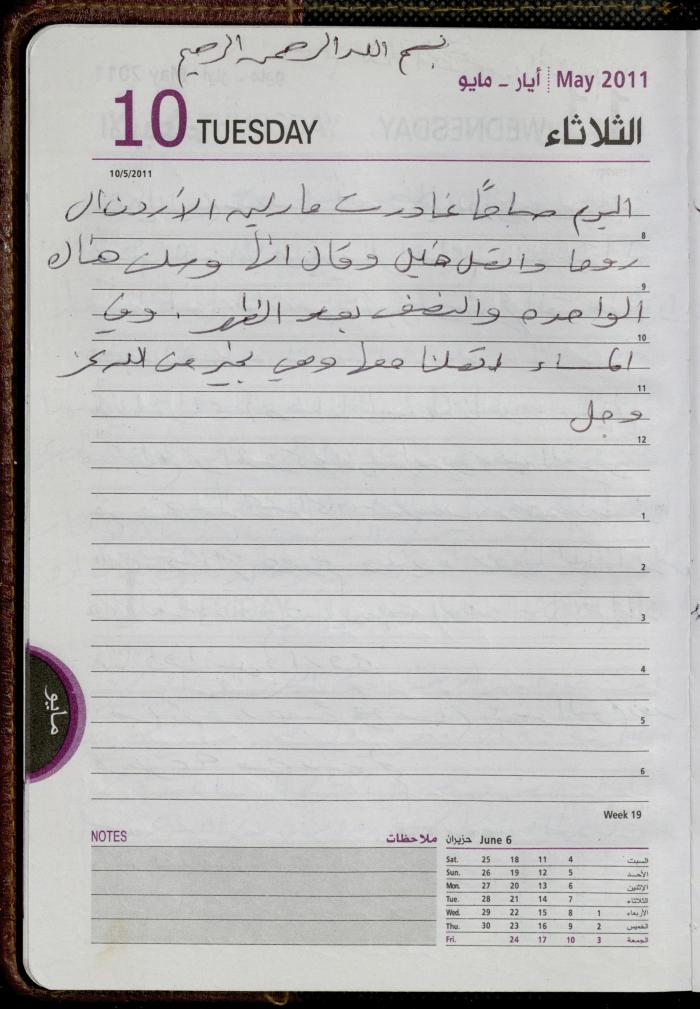 بسم الله الرحمن الرحيم
أيار - مايو May 2011
10 TUESDAY الثلاثاء
10/5/2011
اليوم صباحًا غادرت ماريه الأردن ال
8
روما واتصل خليل وقال انها وصلت هناك
9
الواحده والنصف بعد الظهر . وفي
10
المساء اتصلنا معها وهي بخير من الله عز
11
وجل
12
1
2
3
4
5
6
مايو
Week 19
NOTES ملاحظات
June 6 حزيران
Sat. 25 18 11 4 السبت
Sun. 26 19 12 5 الأحد
Mon. 27 20 13 6 الإثنين
Tue. 28 21 14 7 الثلاثاء
Wed. 29 22 15 8 1 الأربعاء
Thu. 30 23 16 9 2 الخميس
Fri. 24 17 10 3 الجمعة